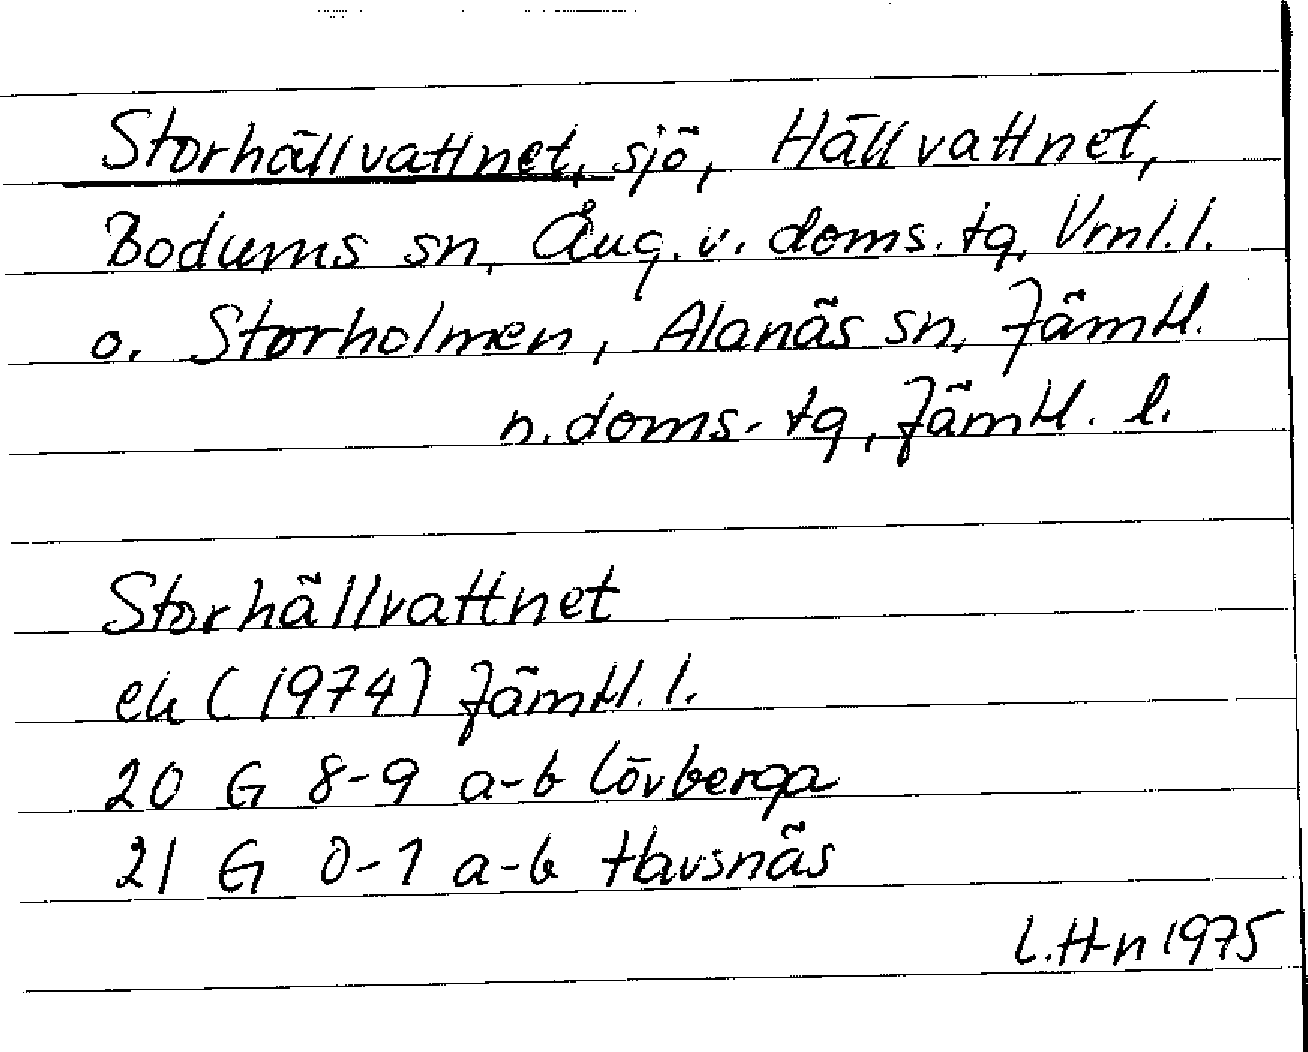 Storhällvattnet, sjö, Hällvattnet,
Bodums sn, Ång. v. doms. tg, Vrnl. l.
o. Storholmen, Alanäs sn, Jämtl.
n. doms. tg, Jämtl. l.
Storhällvattnet
ek (1974) Jämtl. l.
20 G 8-9 a-b Lövberga
21 G 0-1 a-b Havsnäs
L.H-n 1975